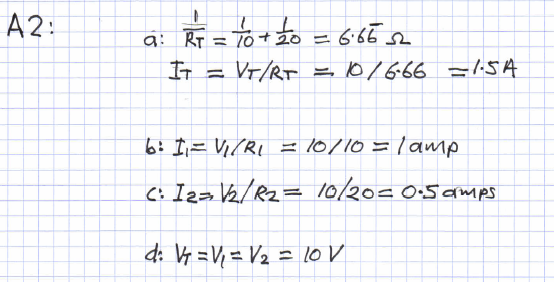 A2:
a: 1/RT = 1/10 + 1/20 = 6.66̅ Ω
IT = VT/RT = 10/6.66 = 1.5A
b: I1 = V1/R1 = 10/10 = 1amp
c: I2 = V2/R2 = 10/20 = 0.5amps
d: VT = V1 = V2 = 10V